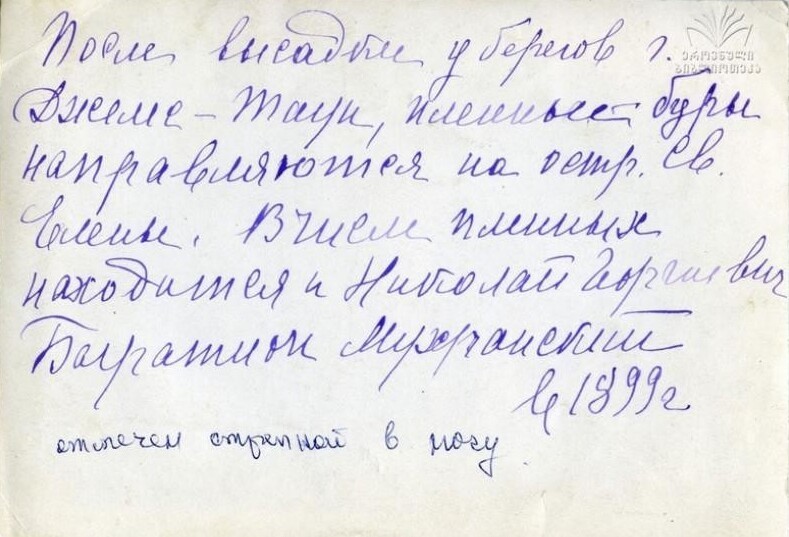 После высадки у берегов г.
Джемс-Таун, пленные буры
направляются на остр. Св.
Елены. В числе пленных
находится и Николай Георгиевич
Багратион Мухранский
в 1899 г
отмечен стрелкой в ногу
ეროვნული
ბიბლიოთეკა